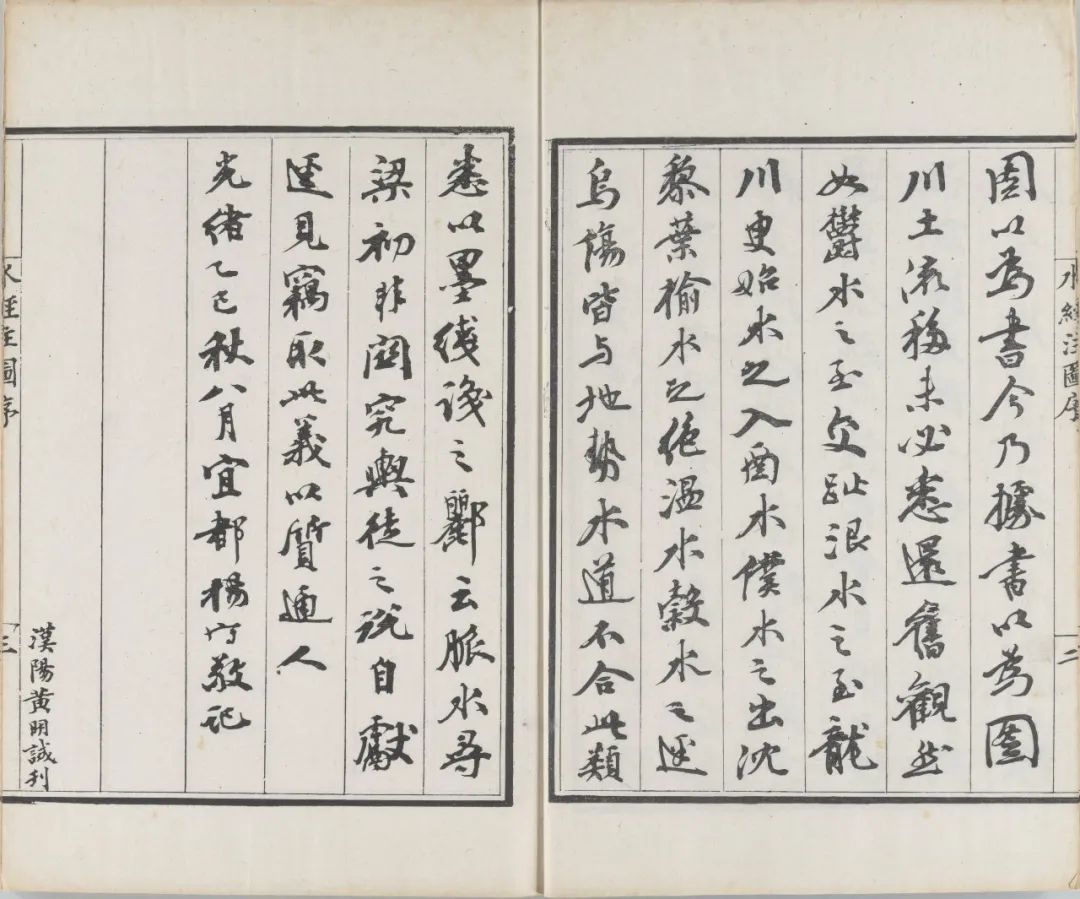 水經注圖序
二
圖以為書今乃據書以為圖
川土流移未必悉還舊觀然
如鬱水之至交趾泿水之至龍
川更始水之入酉水僕水之出沈
黎葉榆水之絕溫水穀水之逕
烏傷皆与地勢水道不合此類
悉以墨綫識之酈云脈水尋
梁初非關究輿徒之說自獻
逕見竊取此義以質通人
光緒乙巳秋八月宜都楊守敬記
水經注圖序
三
漢陽黃明誠刊